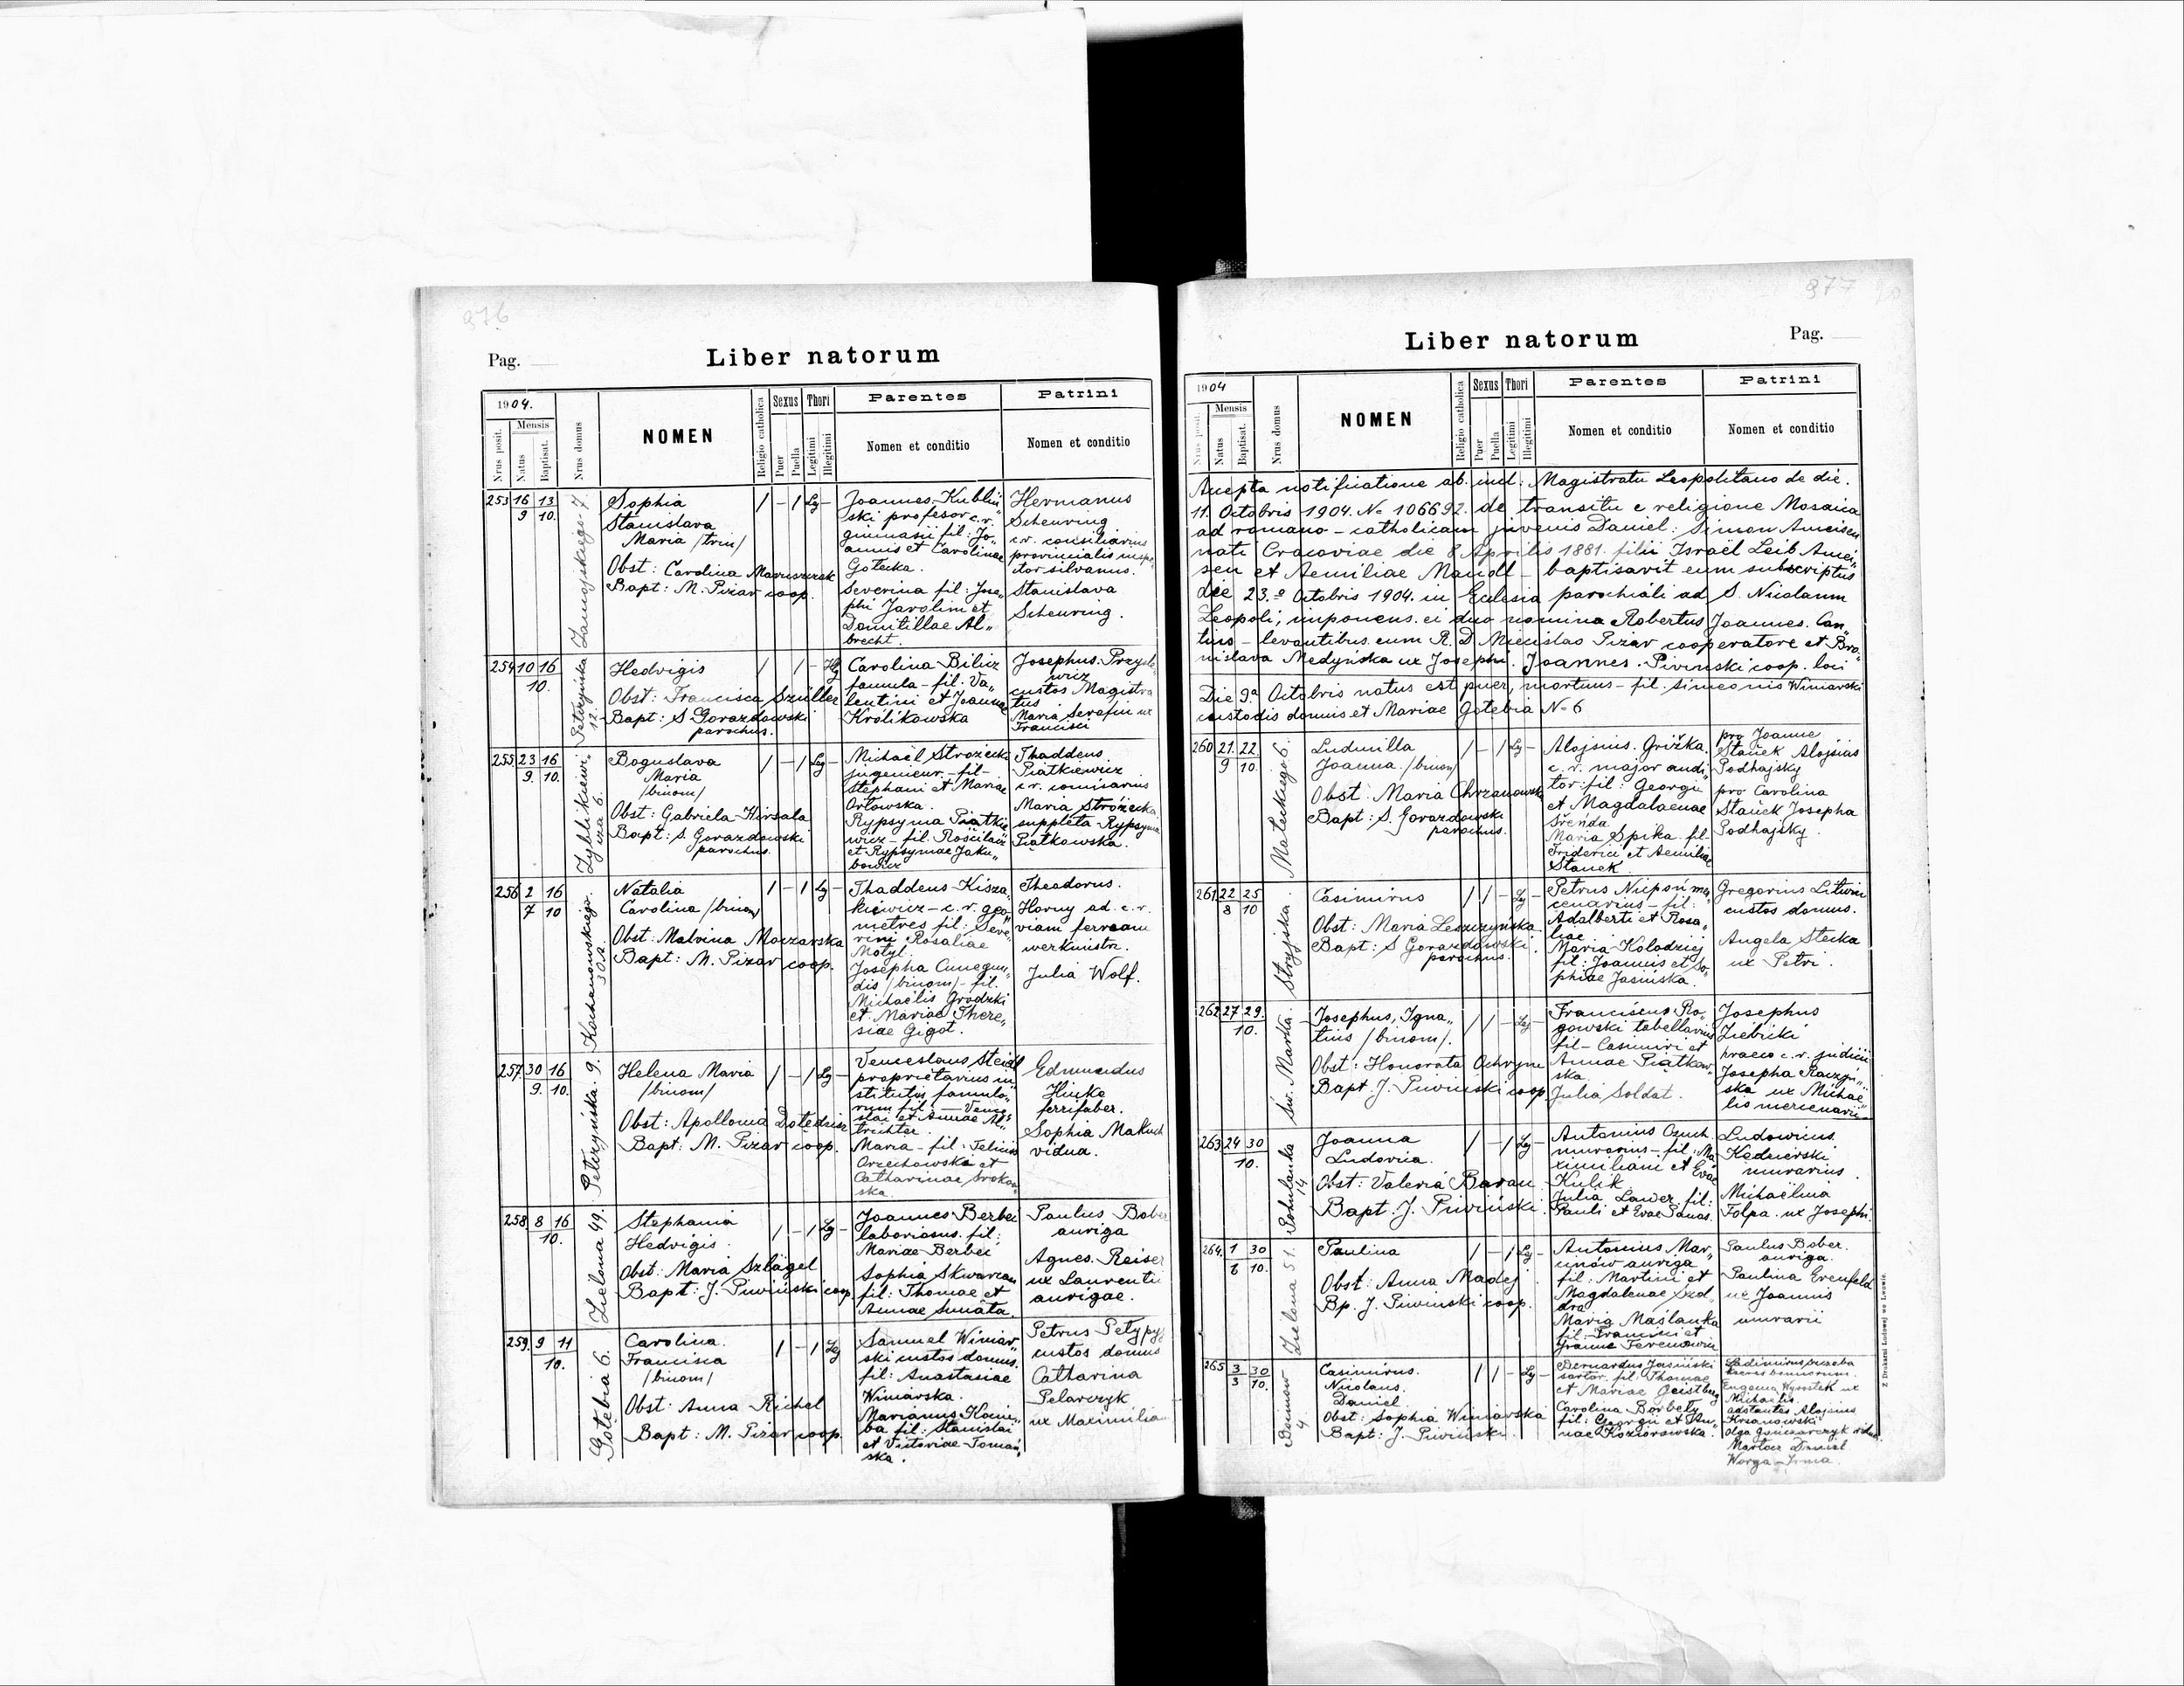 976
Pag.
Liber natorum
1904.
Nrus posit.
Mensis
Natus
Baptisat.
Nrus domus
NOMEN
Religio catholica
Sexus
Puer
Puella
Thori
Legitimi
Illegitimi
Parentes
Nomen et conditio
Patrini
Nomen et conditio
253 16/9 13/10.
Zamojskiego 7.
Sophia
Stanislava
Maria /trin/
Obst: Carolina
Bapt: M. Pizar coop.
/ - / Leg -
Joannes Kubliń„
ski profesor c. r.
gimnasii fil: Jo„
annis et Carolinae
Gotecka.
Severina fil: Jose„
phi Jarolim et
Domitillae Al„
brecht.
Hermanus
Scheuring
c.r. consiliarius
provincialis inspe„
ctor silvanus.
Stanislava
Scheuring.
254 10 16
10.
12
Hedvigis
Obst: Francisca Szüller
Bapt: S Gorazdowski
parochus.
/ / - Illeg
Carolina Bilicz
famula - fil. Va„
lentini et Joannae
Królikowska
Josephus
custos Magistra
tus
Maria Serafin ux
Francisci
255. 23/9. 16/10.
Zyblikiewi„
cza 6.
Boguslava
Maria
/binom/
Obst: Gabriela Hirsala
Bapt: S. Gorazdowski
parochus.
/ - / Leg -
Michaël Strożecki
ingenieur. - fil -
Stephani et Mariae
Orłowska.
Rypsyma Piatkie
wicz - fil.
et Rypsymae Jaku„
bowicz
Thaddeus
Piatkiewicz
c.r. comisarius
Maria Strożecka
suppleta Rypsyma
Piątkowska.
256 2/7 16/10
Kochanowskiego.
30a.
Natalia
Carolina /binom/
Obst: Malvina Moczarska
Bapt: M. Pizar coop.
/ - / Leg -
Thaddeus Kisza„
kiewicz - c. r. geo„
metres fil: Seve„
rini Rosaliae
Motyl.
Josepha Cunegun„
dis /binom/ - fil.
Michaëlis Grodzki
et Mariae There„
siae Gigot.
Theodorus.
Horny ad. c. r.
viam ferream
werkmistr.
Julia Wolf.
257. 30/9. 16/10.
Pełczyńska. 9.
Helena Maria
/binom/
Obst: Apollonia
Bapt: M. Pizar coop.
/ - / Leg -
Venceslaus Steidl
proprietarius in„
stituti famulo„
rum fil - Vence„
slai et Annae Al„
trichter.
Maria - fil: Felicis
Orzechowski et
Catharinae Srokow„
ska
Edmundus
Hinke
ferrifaber.
Sophia Makuch
vidua.
258 8 16
10.
Zielona 49.
Stephania
Hedvigis.
Obst: Maria Szlagel
Bapt: J. Piwiński coop.
/ - / Leg -
Joannes Berbeć
laboriosus. fil:
Mariae Berbeć
Sophia Skwarcan
fil: Thomae et
Annae Smiáta.
Paulus Bober
auriga
Agnes. Reiser
ux Laurentii
aurigae.
259. 9 11
10.
Gołębia 6.
Carolina.
Francisca
/binom/
Obst: Anna Richel
Bapt: M. Pizar coop.
/ - / Leg
Samuel Winiar„
ski custos domus.
fil: Anastasiae
Winiarska.
Marianna
ba fil: Stanislai
et Victoriae Tomań„
ska.
Petrus Petypy
custos domus
Catharina
Pelarczyk
ux Maximilia
977
Liber natorum
Pag.
1904
Nrus posit.
Mensis
Natus
Baptisat.
Nrus domus
NOMEN
Religio catholica
Sexus
Puer
Puella
Thori
Legitimi
Illegitimi
Parentes
Nomen et conditio
Patrini
Nomen et conditio
Accepta notificatione ab. ind: Magistratu Leopolitano de die.
11. Octobris 1904. No 106692. de transitu e religione Mosaica
ad romano - catholicam juvenis Daniel: Simon Ameisen
nati Cracoviae die 8 Aprilis 1881. filii Israël Leib Amei„
sen et Aemiliae Mandl - baptisavit eum subscriptus
die 23.a Octobris 1904. in Ecclesia parochiali ad S. Nicolaum
Leopoli, imponens. ei duo nomina Robertus Joannes. Can„
tius - levantibus eum R. D. Miecislao Pizar cooperatore et Bro„
nislava Medyńska ux Josephi. Joannes. Piwiński coop. loci
Die 9a Octobris natus est puer, mortuus - fil. Simeonis Winiarski
custodis domus et Mariae Gołębia No 6
260 21./9 22./10.
Małeckiego 6.
Ludmilla
Joanna. /binom/
Obst. Maria Chrzanowska
Bapt: S. Gorazdowski
parochus.
/ - / Leg -
Alojsius. Grižka.
c. r. major audi„
tor fil: Georgii
et Magdalaenae
Šrenda
Maria Spika. fil-
Friderici et Aemiliae
Stanek.
pro Joanne
Stanek Alojsius
Podhajsky
pro Carolina
Stanek Josepha
Podhajsky.
261 22/8 25/10
Stryjska.
Casimirus
Obst: Maria Leszczyńska
Bapt: S Gorazdowski.
parochus.
/ / - Leg -
Petrus Niipoń mer„
cenarius - fil:
Adalberti et Rosa„
liae
Maria Kolodziej
fil: Joannis et So„
phiae Jasińska.
Gregorius Litwin
custos domus.
Angela Stecka
ux Petri.
262 27 29.
10.
Św. Marka.
Josephus, Igna„
tius /binom/.
Obst: Honorata Ochrym
Bapt. J. Piwiński coop
/ / - Leg -
Franciscus Ro„
gowski tabellarius
fil - Casimiri et
Annae Piątkow„
ska
Julia Soldat.
Josephus
Ziebicki
praeco c.r. judicii
Josepha Raczyń„
ska ux Michaë„
lis mercenarii
263 24 30
10.
Pohulanka
14
Joanna
Ludovica.
Obst: Valeria Baran
Bapt. J. Piwiński.
/ - / Leg
Antonius Czuch.
murarius - fil: Ma„
ximiliani et Evae
Kulik.
Julia Lawer. fil:
Pauli et Evae Panas.
Ludovicus.
Kednerski
murarius.
Michaëlina
Folpa. ux Josephi.
264. 1/6 30/10.
Zielona 51.
Paulina
Obst: Anna Madej
Bp. J. Piwiński coop.
/ - / Leg -
Antonius Mar„
unów auriga
fil: Martini et
Magdalenae
Maria Maślanka
fil: Francisci et
Joanne
Paulus Bober.
auriga
Paulina Erenfeld
ux Joannis
murarii
265 3/3 30/10.
4.
Casimirus.
Nicolaus.
Daniel
Obst: Sophia Winiarska
Bapt: J. Piwiński.
/ / - Leg -
Bernardus Jasiński
sartor. fil: Thomae
et Mariae Geistberg
Carolina Borbely
fil: Georgii et An„
nae Koziorowska.
Eugenia Wyrostek ux
Michaelis
adstantes Alojsius
Krzanowski
Olga
Martar Daniel
Worga - Irma.
Z Drukarni Ludowej we Lwowie.